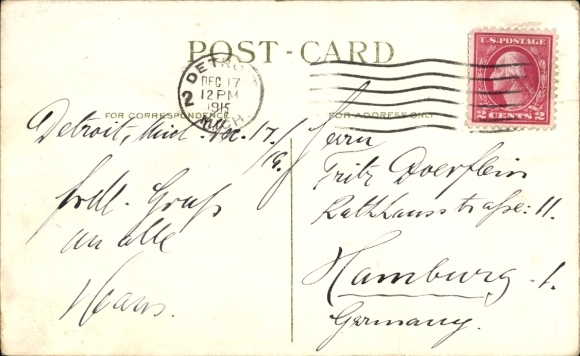 POST-CARD
U.S. POSTAGE
2 CENTS 2
DETROIT
DEC 17
12 PM
1915
MICH.
2
FOR CORRESPONDENCE
FOR ADDRESS ONLY
Detroit, Mich. Dec. 17.
Herrn
Fritz Doerflein
Rathhausstrasse: 11.
frdl. Gruß
an alle
Hans.
Hamburg - 1.
Germany.